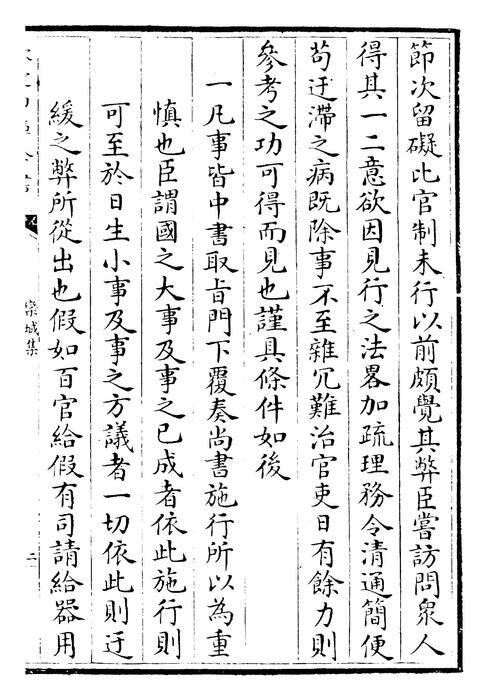 節次留礙比官制未行以前頗覺其弊臣嘗訪問衆人
得其一二意欲因見行之法畧加疏理務令清通簡便
茍迂滯之病既除事不至雜冗難治官吏日有餘力則
參考之功可得而見也謹具條件如後
一凡事皆中書取㫖門下覆奏尚書施行所以為重
慎也臣謂國之大事及事之已成者依此施行則
可至於日生小事及事之方議者一切依此則迂
緩之弊所從出也假如百官給假有司請給器用
欒城集
二